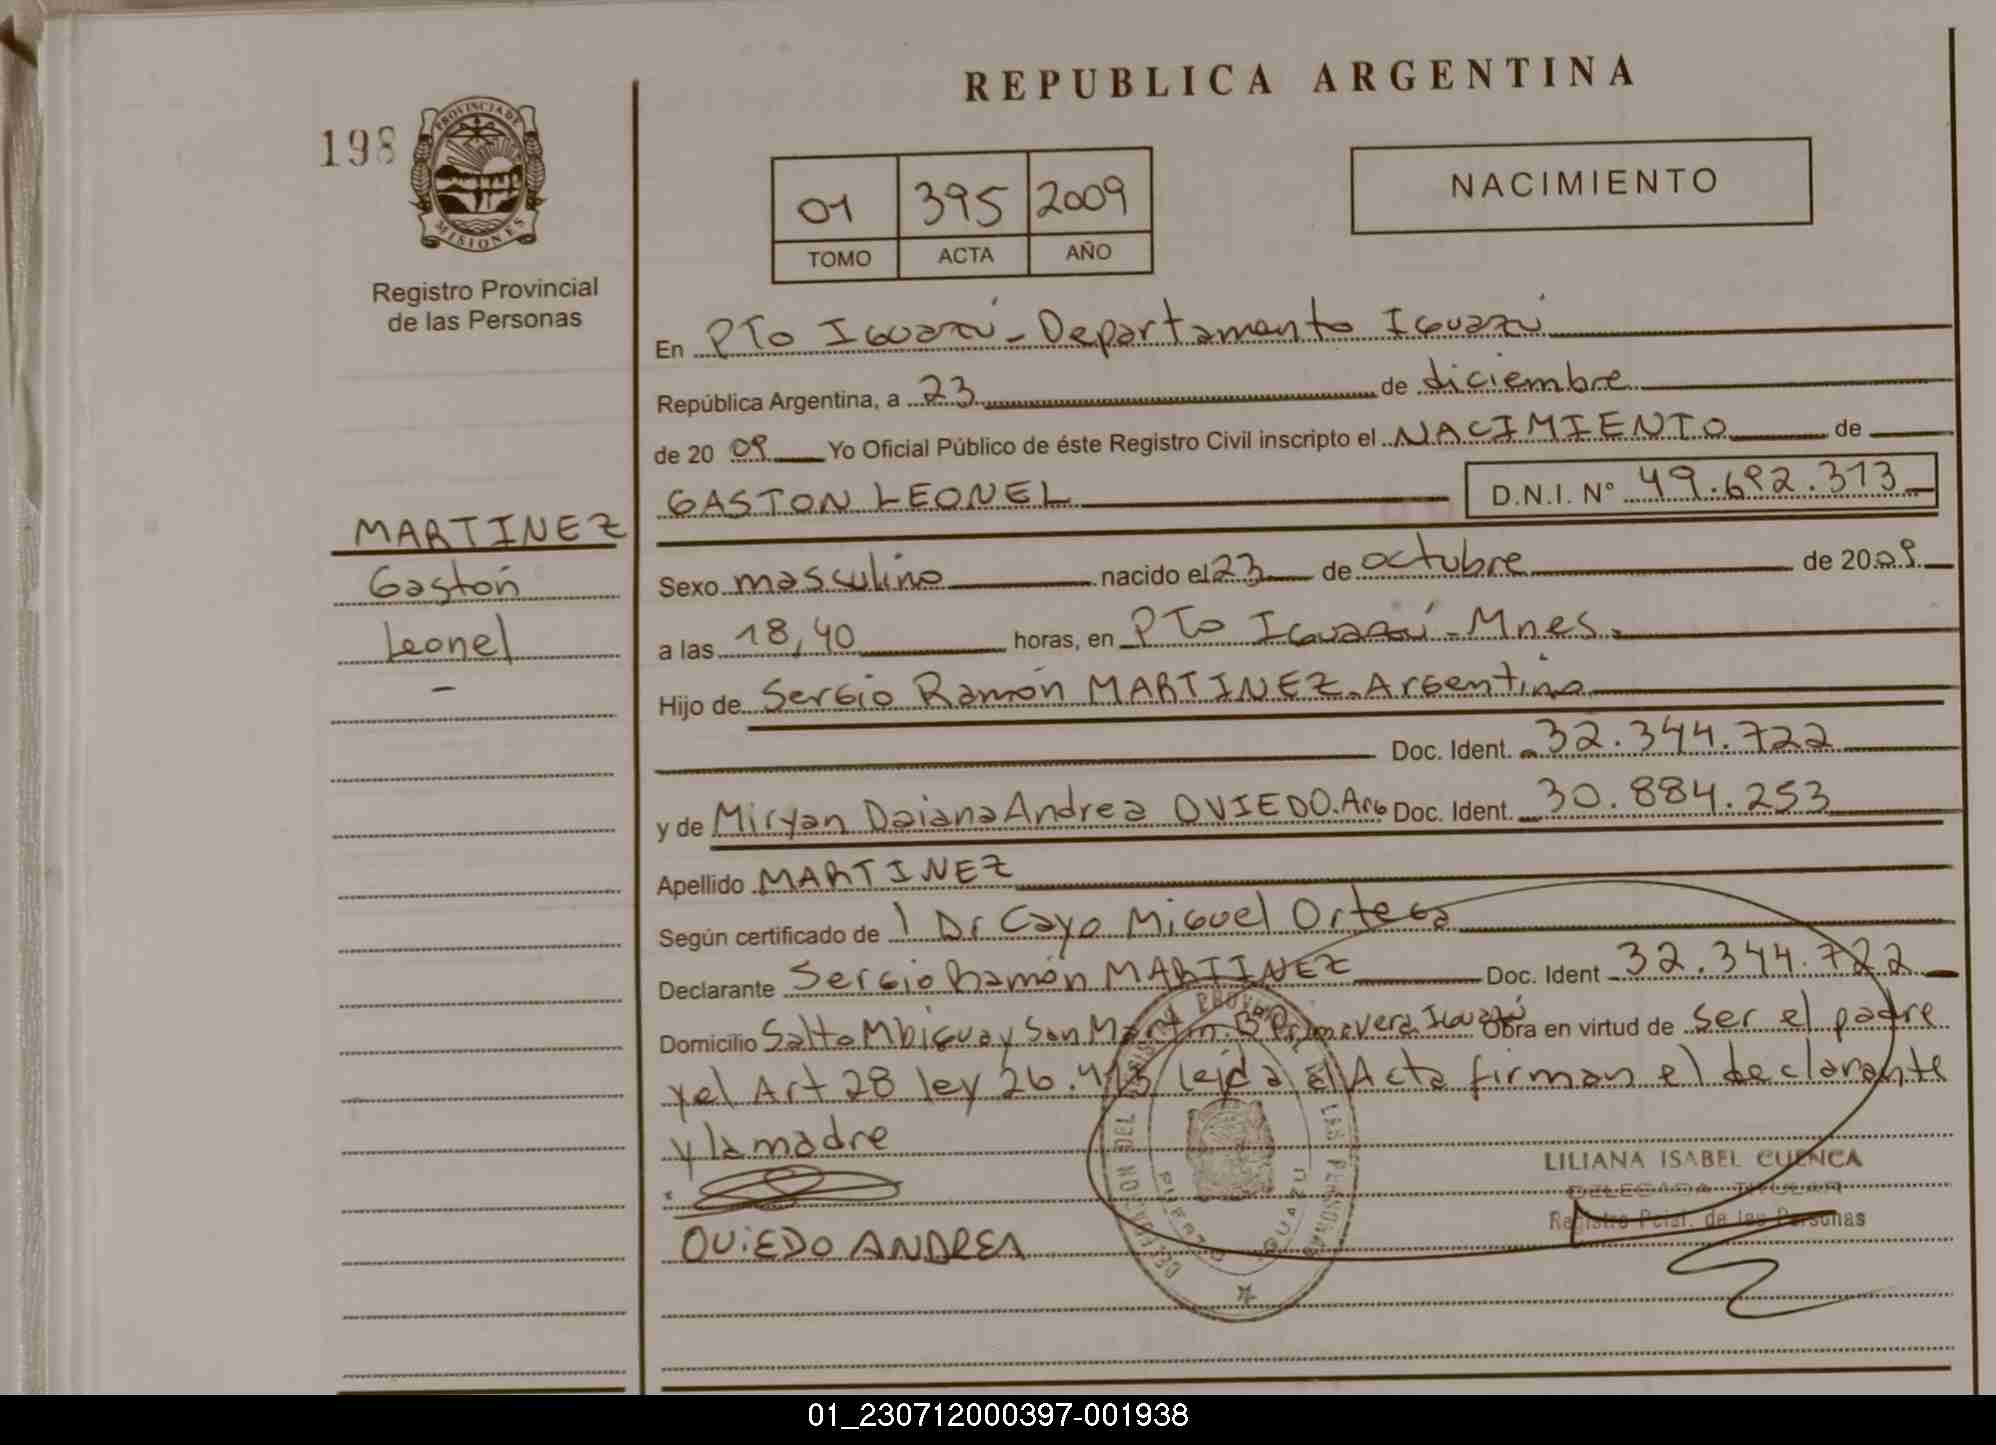 REPUBLICA ARGENTINA
198
PROVINCIA DE
MISIONES
Registro Provincial
de las Personas
01 395 2009
TOMO ACTA AÑO
NACIMIENTO
En PTo Iguazú - Departamento Iguazú
República Argentina, a 23 de diciembre
de 2009 Yo Oficial Público de éste Registro Civil inscripto el NACIMIENTO de
GASTON LEONEL D.N.I. Nº 49.692.313
MARTINEZ
Gastón
Leonel
Sexo masculino nacido el 23 de octubre de 2009
a las 18,40 horas, en PTo Iguazú - Mnes.
Hijo de Sergio Ramón MARTINEZ. Argentino
Doc. Ident. 32.344.722
y de Miryan Daiana Andrea OVIEDO. Arg Doc. Ident. 30.884.253
Apellido MARTINEZ
Según certificado de l Dr Cayo Miguel Ortega
Declarante Sergio Ramón MARTINEZ Doc. Ident 32.344.722
Domicilio Salto Mbigua y San Martin. B Primavera Iguazú Obra en virtud de ser el padre
y el Art 28 ley 26.413 leida el Acta firman el declarante
y la madre
OViEDO ANDREA
LILIANA ISABEL CUENCA
DELEGADA TITULAR
Registro Pcial. de las Personas
DELEGACION DEL REGISTRO PROVINCIAL DE LAS PERSONAS
PUERTO IGUAZU
01_230712000397-001938